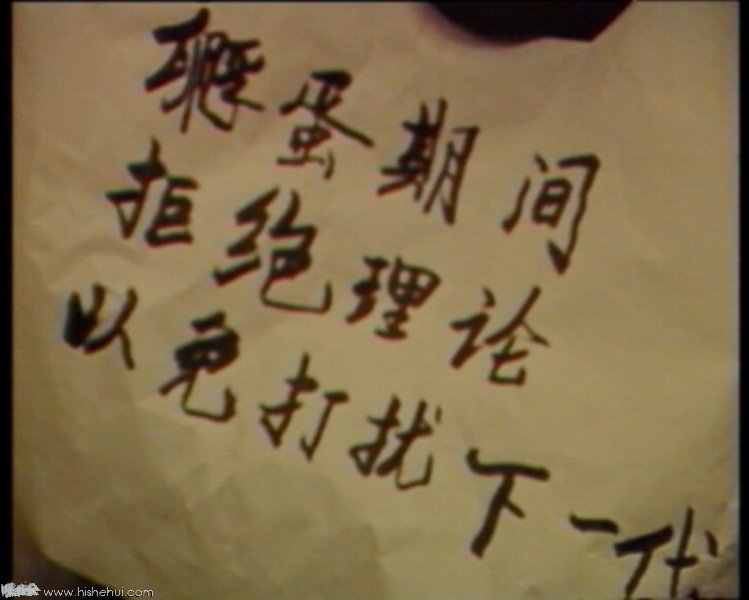 孵蛋期间
拒绝理论
以免打扰下一代
www.hishehui.com